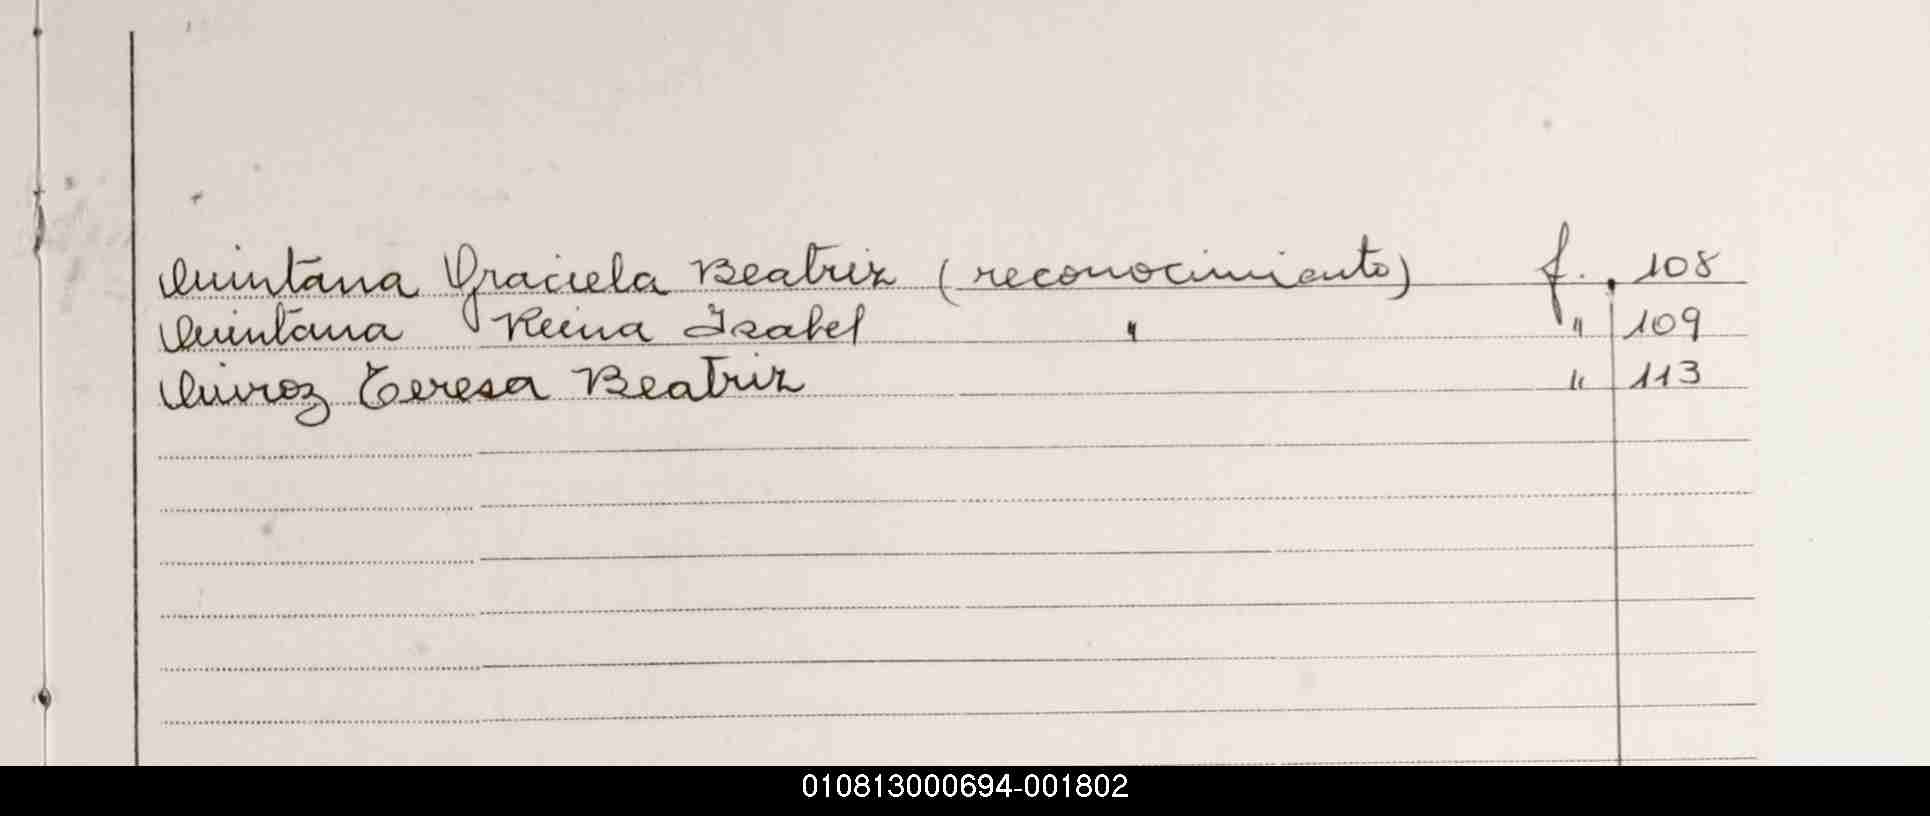 Quintana Graciela Beatriz (reconocimiento) f. 108
Quintana Reina Isabel " " 109
Quiroz Teresa Beatriz " 113
010813000694-001802